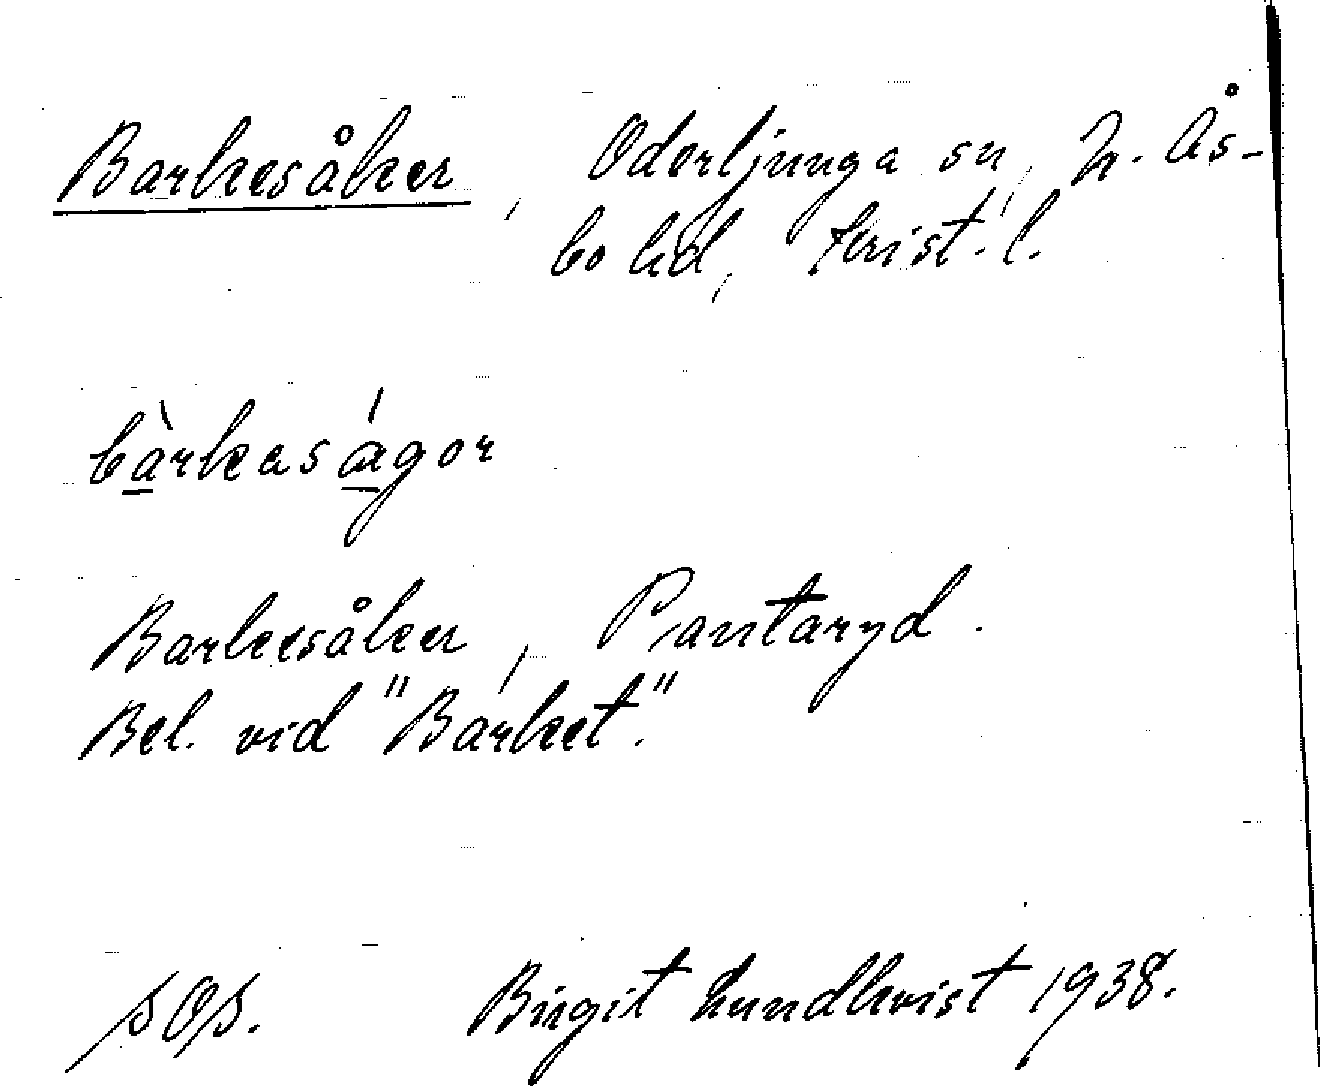 Barkesåker, Oderljunga sn, N. Ås-
bo hd, Krist. l.
bàrkaságor
Barkesåker, Pantaryd.
Bel. vid "Barket".
SOS. Birgit Lundkvist 1938.